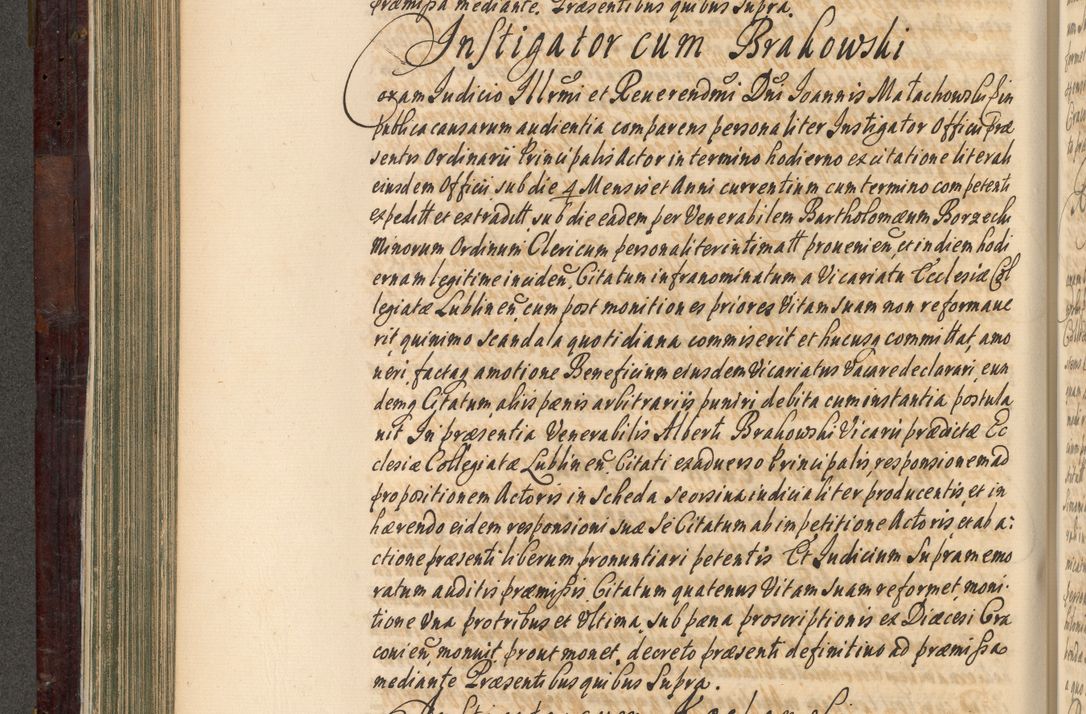 præmissa mediante. Præsentibus quibus supra.
Instigator cum Brakowski
Coram Judicio Illrmi et Reuerendmi Dni Joannis Małachowski in
publica causarum audientia comparens personaliter Instigator Officii præ
sentis Ordinarii Principalis Actor in termino hodierno ex citatione literali
eiusdem Officii sub die 4 Mensis et Anni currentium cum termino competenti
expeditt et extraditt, sub die eadem per Venerabilem Bartholomæum Borzechi
Minorum Ordinum Clericum personaliter intimatt prouenien, et in diem hodi
ernam legitime inciden, Citatum infranominatum a Vicariatu Ecclesiæ Col
legiatæ Lublinen, cum post monitiones priores Vitam suam non reformaue
rit quinimo scandala quotidiana commiserit et hucusq committat, amo
ueri, factaq amotione Beneficium eiusdem Vicariatus Vacare declarari, eun
demq Citatum aliis pænis arbitrariis puniri debita cum instantia postula
uit In præsentia Venerabilis Alberti Brakowski Vicarii prædictæ Ec
clesiæ Collegiatæ Lublinen, Citati exaduerso Principalis, responsionem ad
propositionem Actoris in scheda seorsiua iudicialiter producentis, et in
hærendo eidem responsioni suæ se Citatum ab impetitione Actoris, et ab a:
ctione præsenti liberum pronuntiari petentis Et Judicium supramemo
ratum auditis præmissis, Citatum quatenus Vitam suam reformet, moni
tione Una pro tribus et Ultima, sub pæna proscriptionis ex Diæcesi Cra
couien, monuit prout monet, decreto præsenti definitiuo ad præmissa
mediante Præsentibus quibus supra.
Instigator cum